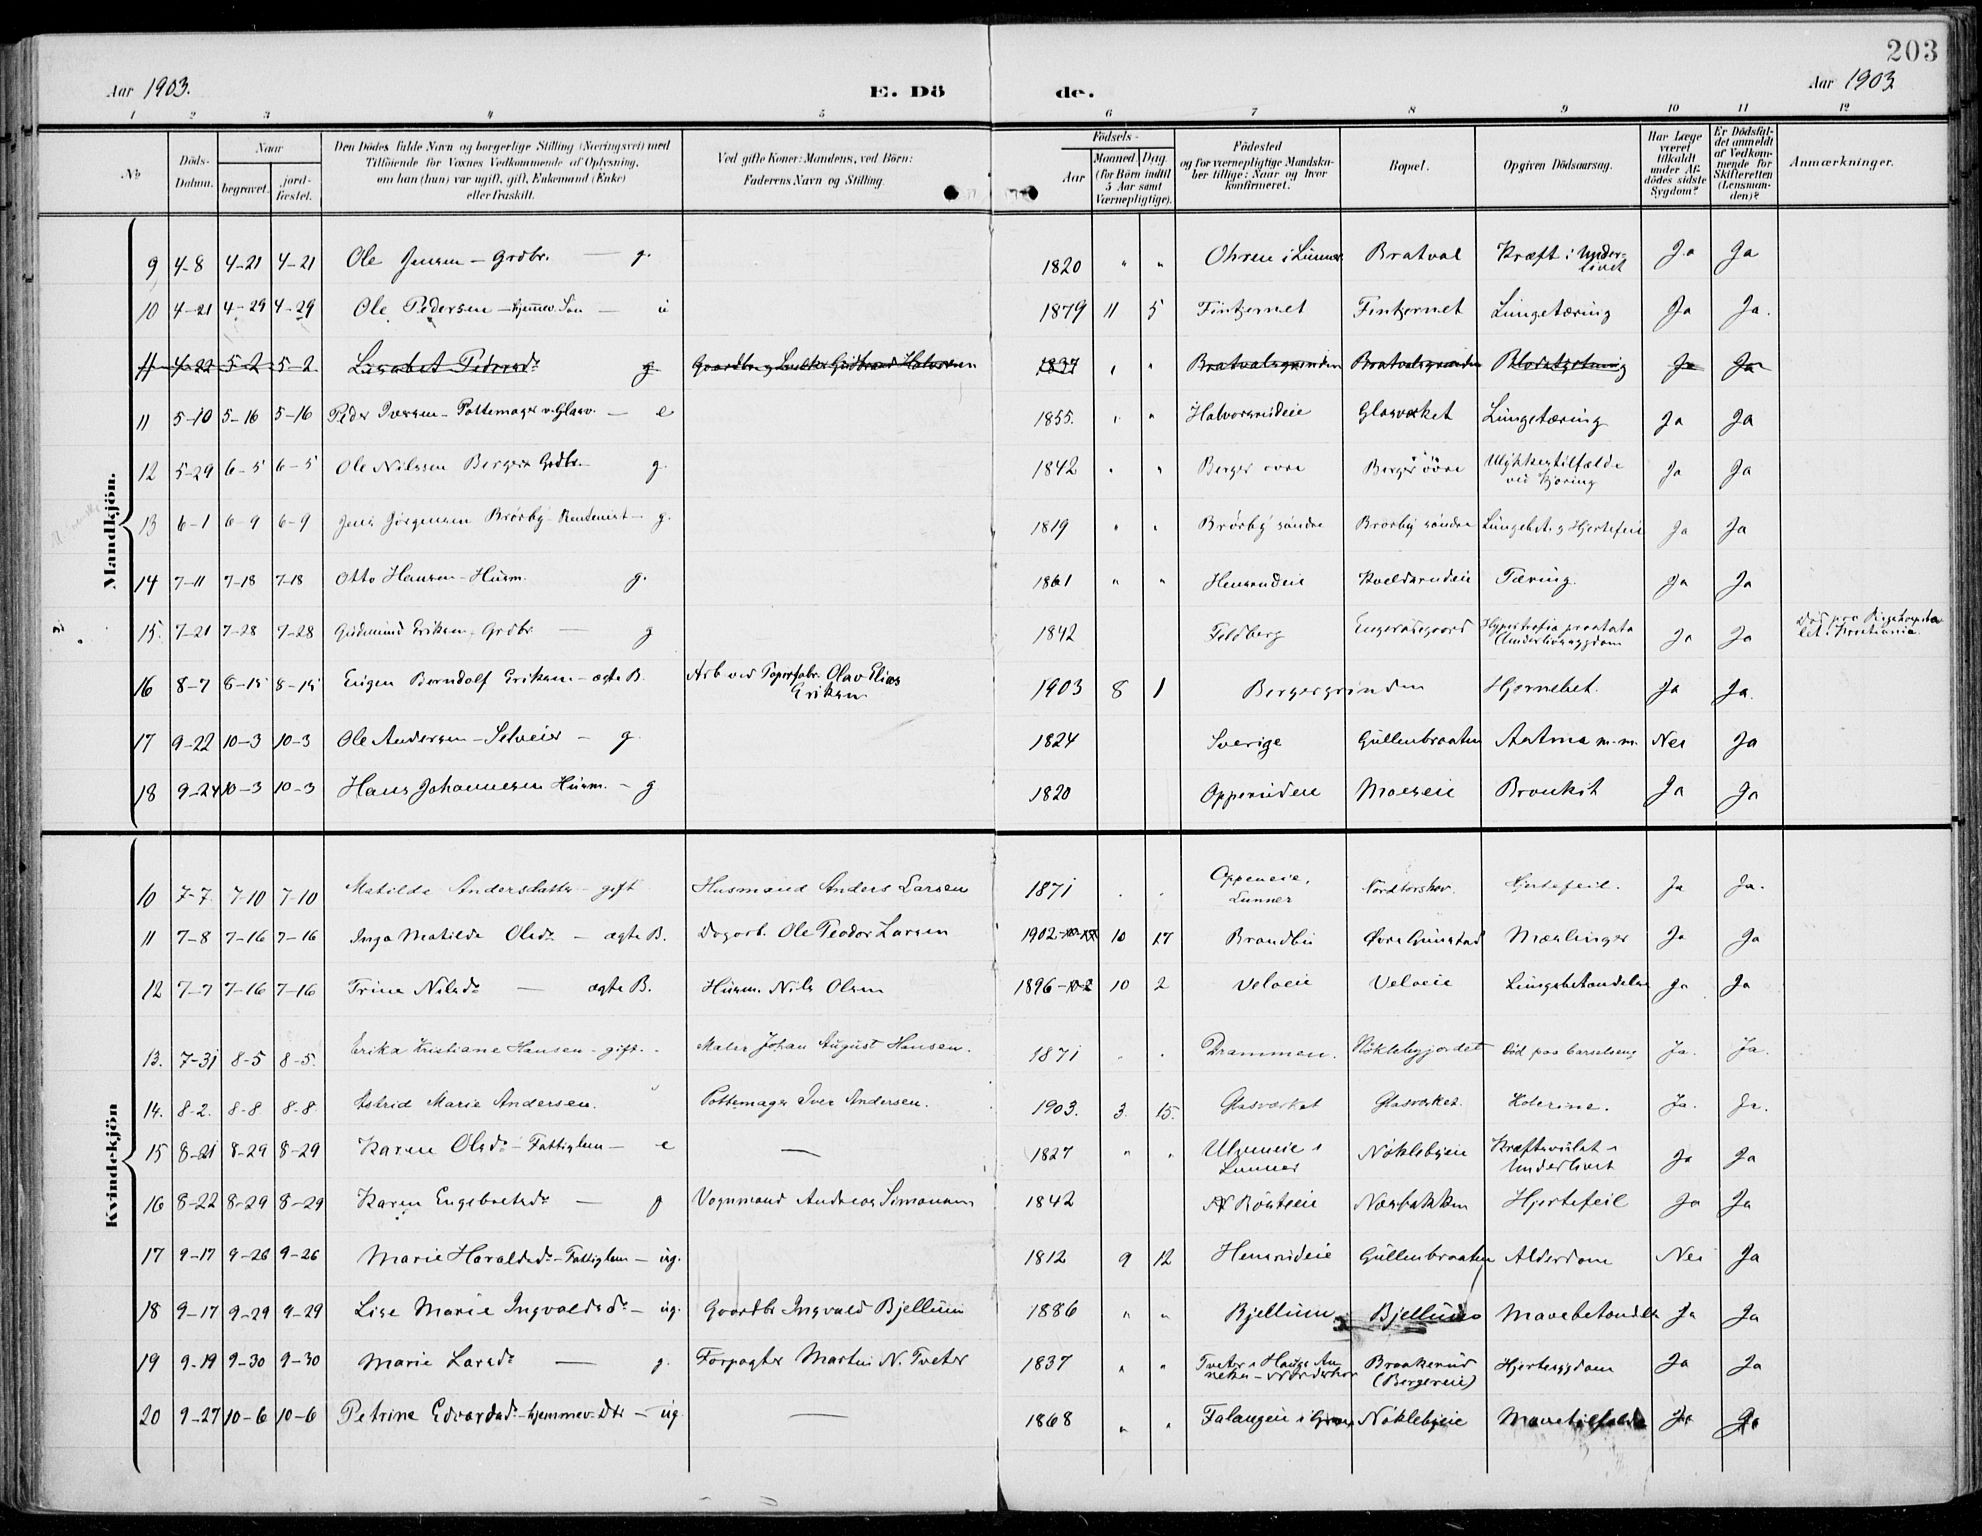 203
Aar 1903. E. Dö de. Aar 1903
1 2 3 4 5 6 7 8 9 10 11 12
No
Döds-
Datum.
Naar
begravet.
jord-
fæstet.
Den Dödes fulde Navn og borgerlige Stilling (Næringsvei) med
Tilföiende for Voxnes Vedkommende af Oplysning,
om han (hun) var ugift, gift, Enkemand (Enke)
eller fraskilt.
Ved gifte Koner: Mandens, ved Börn:
Faderens Navn og Stilling.
Födsels-
Aar
Maaned. Dag.
(for Börn indtil
5 Aar samt
Værnepligtige).
Födested
og for værnepligtige Mandska-
ber tillige: Naar og hvor
konfirmeret.
Bopæl.
Opgiven Dödsaarsag.
Har Læge
været
tilkaldt
under Af-
dödes sidste
Sygdom?
Er Dödsfal-
det anmeldt
af Vedkom-
mende for
Skifteretten
(Lensman-
den)?
Anmærkninger.
Mandkjön.
9 4-8 4-21 4-21 Ole Jensen - Grdbr. — g. 1820 " " Ohren i Lunner Bratval Kræft i Under-
livet Ja Ja
10 4-21 4-29 4-29 Ole Pedersen - hjemmev. Søn — u 1879 11 5 Fintjernet Fintjernet Lungetæring Ja Ja.
11 4-22 5-2 5-2 Lisabet Pedersd. g. Gaardbr. og Gudbrand Halvorsen 1837 " " Bratvalsgrinden Bratvalsgrinden Blodstyrtning Ja Ja
11 5-10 5-16 5-16 Peder Iversen - Pottemager v. Glasv. — e 1855. " " Halvorsrudeie Glasværket Lungetæring Ja Ja
12 5-29 6-5 6-5 Ole Nilssen Berger Grdbr. - g. 1842 " " Berger øvre Berger øvre Ulykkestilfælde
ved Kjøring Ja Ja
13 6-1 6-9 6-9 Jens Jørgensen Brørby - g. 1819 " " Brørby søndre Brørby søndre Lungebet. og Hjertefeil Ja Ja
14 7-11 7-18 7-18 Otto Hansen - Husm. g. 1861 " " Hensrudeie Kveldsrudeie Tæring. Ja Ja
15. 7-21 7-28 7-28 Gudmund Eriksen, Grdbr. — g 1842 Feldberg Hypertrofia prostata
Underlivssygdom Ja Ja Død paa Rigshospita-
let i Kristiania.
16 8-7 8-15 8-15 Eugen Berndolf Eriksen - ægte B. Arb ved Papirfabr. Olav Elias
Eriksen 1903 8 1 Bergergrinden Hjernebet. Ja Ja.
17 9-22 10-3 10-3 Ole Andersen - Selveier - g. 1824 Sverige Gullenbraaten Astma m.m. Nei Ja
18 9-24 10-3 10-3 Hans Johannesen Husm. - g 1820 Opperuden Moeseie Bronkit Ja Ja
Kvindekjön
10 7-7. 7-10 7-10 Matilde Andersdatter - gift Husmand Anders Larsen 1871 . . Oppeneie,
Lunner Nordtorshov. Hjertefeil. Ja Ja.
11 7-8 7-16 7-16 Inga Matilde Olsd. - ægte B. Dagarb. Ole Teodor Larsen 1902 10 17 Brandbu Øvre Gunstad Mæslinger Ja Ja
12 7-7 7-16 7-16 Trine Nilsd. — ægte B. Husm. Nils Olsen 1896-10-2 10 2 Veloeie Veloeie Lungebetændelse Ja Ja
13. 7-31 8-5 8-5. Erika Kristiane Hansen - gift. Maler Johan August Hansen. 1871 . . Drammen. Nøklebyjordet Død paa Barselseng Ja. Ja.
14. 8-2. 8-8 8-8. Astrid Marie Andersen. Pottemager Iver Andersen. 1903. 3. 15. Glasværket Glasværket. Kolerine. Ja. Ja.
15 8-21 8-29 8-29 Karen Olsd. - Fattiglem — e — 1827 " " Ulvneeie i
Lunner Nøklebyeie Kræftsvulst i
Underlivet Ja Ja
16 8-22 8-29 8-29 Karen Engebretsd. — g Vognmand Andreas Simonsen 1842 Røisteie Næsbakken Hjertefeil Ja Ja
17 9-17 9-26 9-26 Marie Haraldsd. - Fattiglem — ug. 1812 9 12 Hensrudeie Gullenbraaten Alderdom Nei Ja
18 9-17 9-29 9-29 Lise Marie Ingvaldsd. - ug. Gaardbr Ingvald Bjellum 1886 " " Bjellum Bjellum Mavebetændelse Ja Ja
19 9-19 9-30 9-30 Marie Larsd. — g. Forpagter Martin N. Tveter 1837 " " Tveter i Braakerud
(Bergereie) Hjertesygdom Ja Ja
20 9-27 10-6 10-6 Petrine Edvardsd. - hjemmev. Dtr — ug. — 1868 " " Falangeie i Gran Nøklebyeie Mavetilfælde Ja Ja